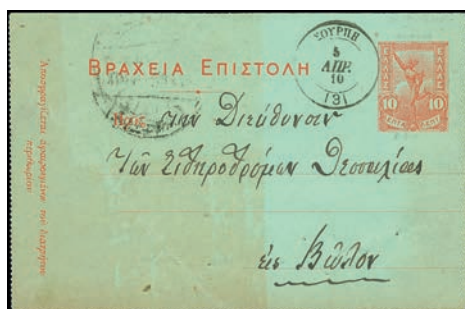 ΣΟΥΡΠΗ
5
ΑΠΡ.
10
(3)
ΒΡΑΧΕΙΑ ΕΠΙΣΤΟΛΗ
ΕΛΛΑΣ
ΕΛΛΑΣ
10 10
ΛΕΠΤΑ ΛΕΠΤ
Πρὸς τὴν Διεύθυνσιν
τῶν Σιδηροδρόμων Θεσσαλίας
εἰς Βῶλον